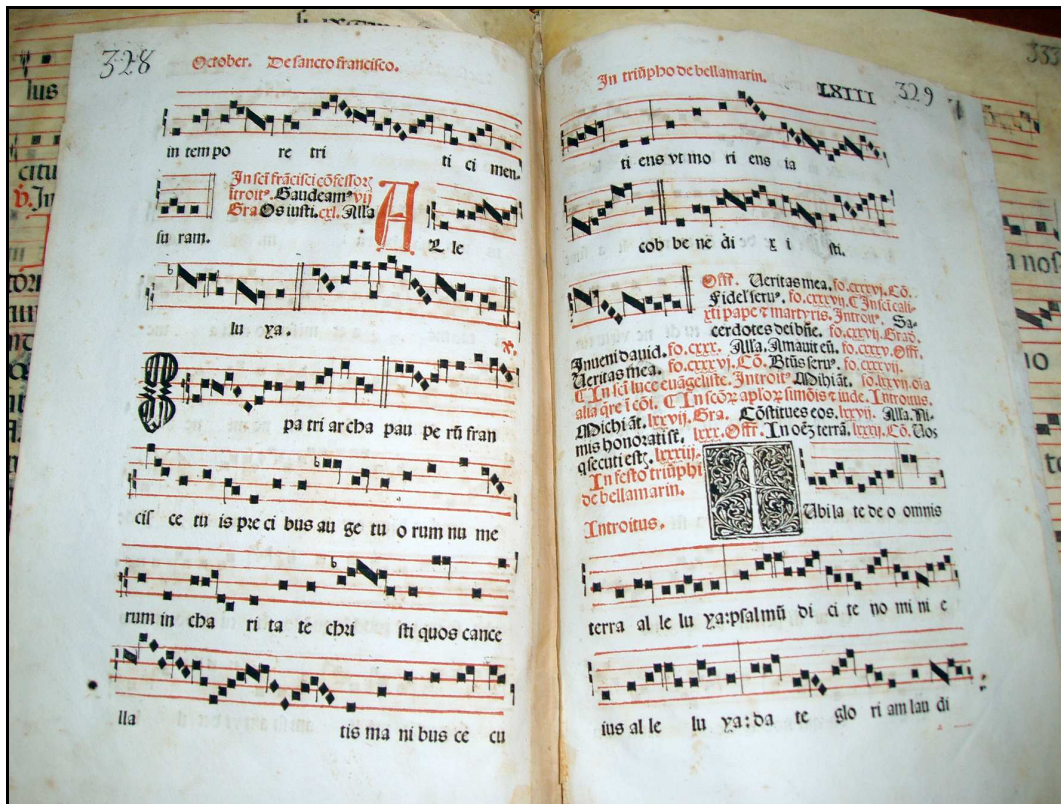 328
October. De sancto francisco.
in tem po re tri ti ci men.
In scī frācisci cōfessoꝝ
itroitꝰ. Gaudeamꝰ vij
Gra Os iusti. cxl. Alla
su ram.
A L le
lu ya.
x.
pa tri ar cha pau pe rū fran
cis ce tu is pre ci bus au ge tu o rum nu me
rum in cha ri ta te chri sti quos cance
lla tis ma ni bus ce cu
In triūpho de bellamarin. LXIII 329
ti ens vt mo ri ens ia
cob be ne di x i sti.
Off̄. Veritas mea. fo. cxxxvj. Cō.
Fidel seruꝰ. fo. cxxxvij. ¶ In scī cali-
xti pape ⁊ martyris. Introitꝰ. Sa-
cerdotes dei bñe. fo. cxxvij. Grad.
Inueni dauid. fo. cxxx. Alla. Amauit eū. fo. cxxxv. Off̄.
Veritas mea. fo. cxxxvj. Cō. Btūs seruꝰ. fo. cxxxvij.
¶ In scī luce euāgeliste. Introitꝰ. Mihi āt. fo. lxxvij. oīa
alia q̄re ī cōi. ¶ In scōꝝ aplōꝝ simōis ⁊ iude. Introitus.
Michi āt. lxxvij. Gra. Cōstitues eos. lxxvij. Alla. Ni-
mis honorati sūt. lxxx. Off̄. In oēz terrā. lxxxij. Cō. Vos
q̄ secuti estꝭ. lxxxiij.
In festo triūphi
de bellamarin.
Introitus.
IUbi la te de o omnis
terra al le lu ya: psalmū di ci te no mi ni e
ius al le lu ya: da te glo ri am lau di
333
lus
citu
℣. In
a nos